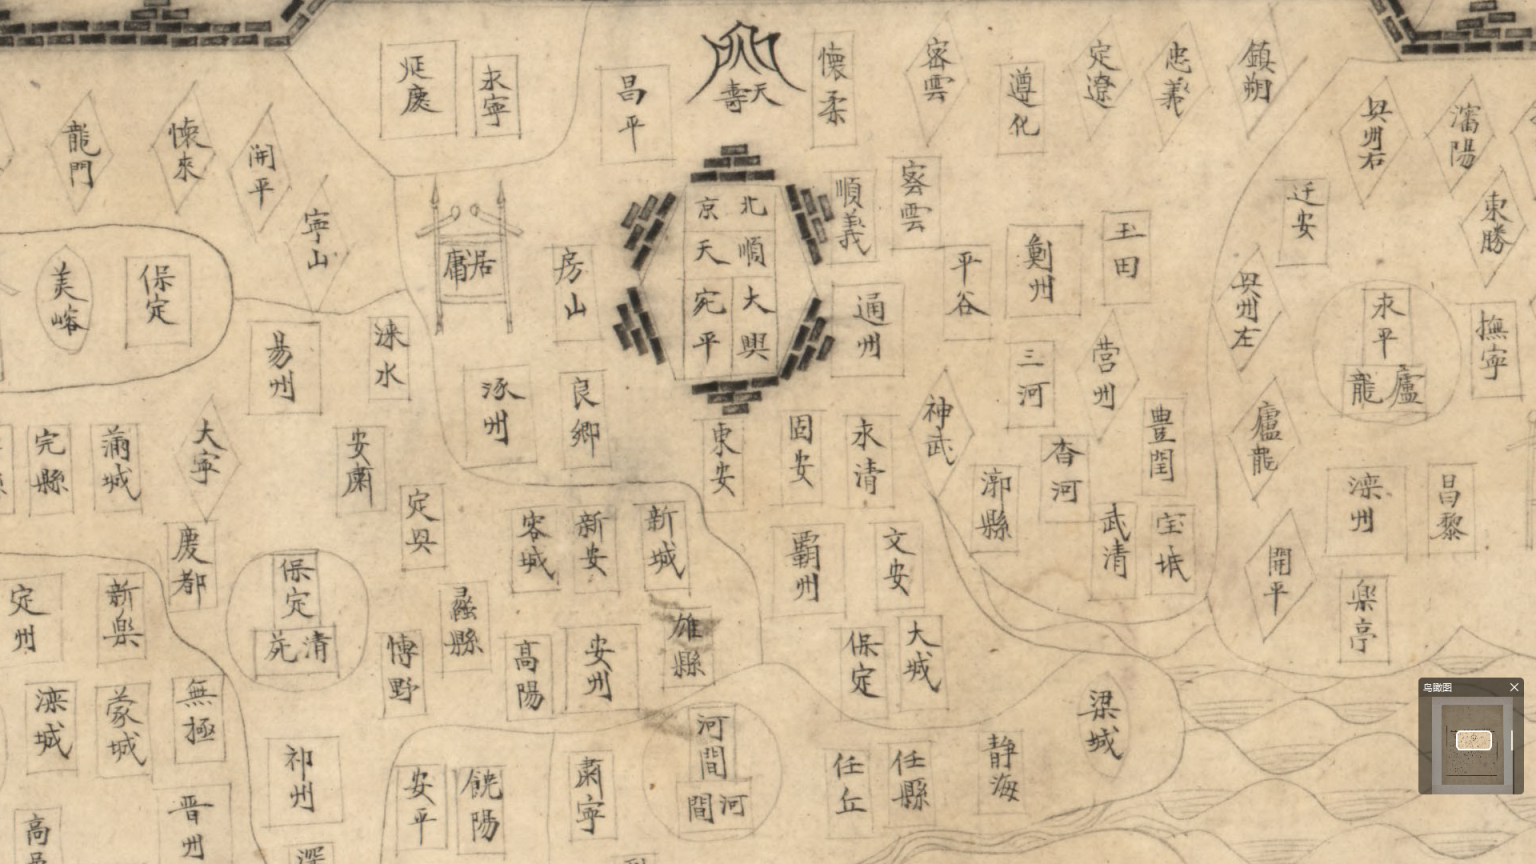 延慶
永寧
昌平
天壽
懷柔
密雲
遵化
定遼
忠義
鎮朔
龍門
懷來
開平
寧山
瀋陽
東勝
遷安
居庸
房山
北京
順天
大興
宛平
順義
密雲
平谷
薊州
玉田
通州
三河
营州
美峪
保定
易州
淶水
涿州
良鄉
東安
固安
永清
神武
香河
豊閏
漷縣
武清
宝坻
永平
盧龍
撫寧
盧龍
滦州
昌黎
開平
楽亭
完縣
蒲城
大寧
安肅
定興
慶都
容城
新安
新城
霸州
文安
保定
大城
雄縣
定州
新楽
保定
清苑
博野
蠡縣
高陽
安州
滦城
蒙城
無極
祁州
晋州
安平
饒陽
肅寧
河間
河間
任丘
任縣
静海
梁城
鸟瞰图